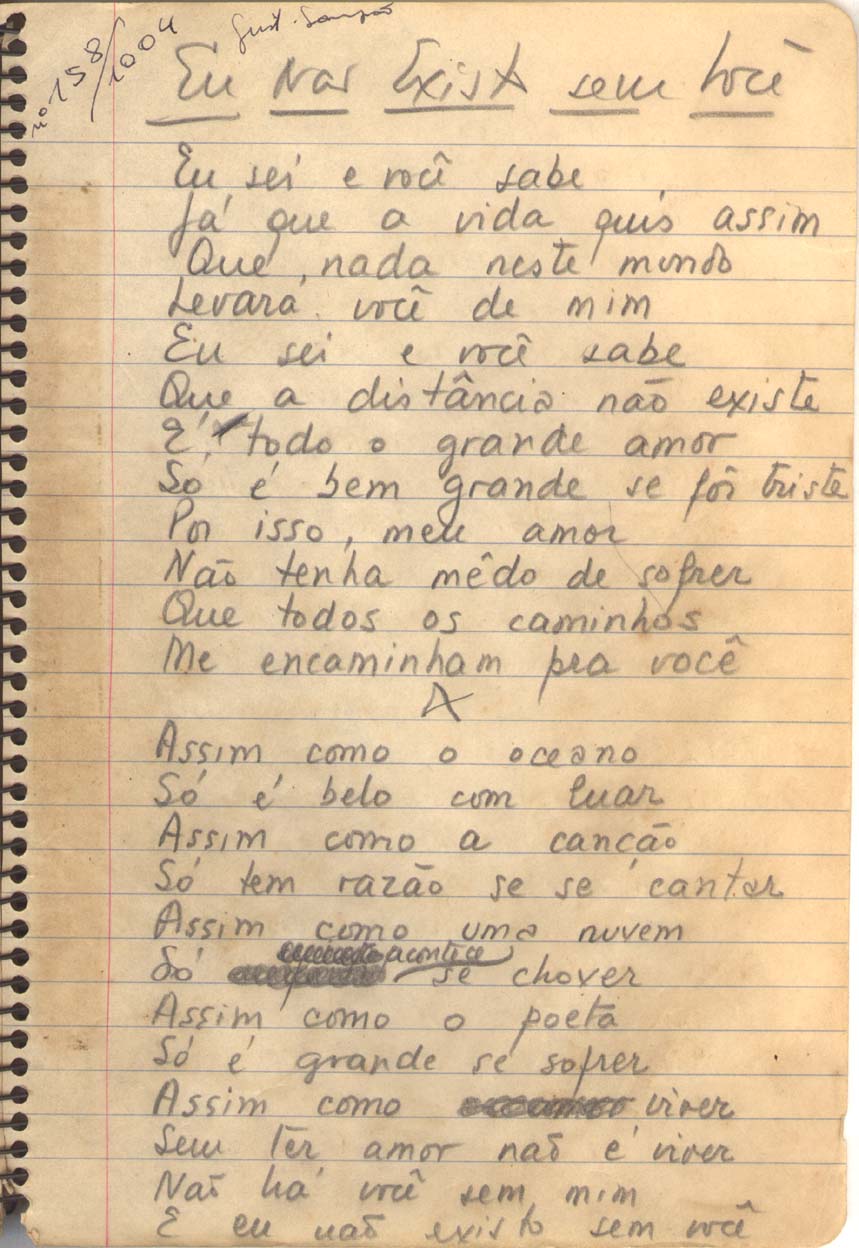 nº 158/1004
Eu Não Existo sem Você
Eu sei e você sabe
Já que a vida quis assim
Que nada neste mundo
Levará você de mim
Eu sei e você sabe
Que a distância não existe
E todo o grande amor
Só é bem grande se fôr triste
Por isso, meu amor
Não tenha mêdo de sofrer
Que todos os caminhos
Me encaminham pra você
A
Assim como o oceano
Só é belo com luar
Assim como a canção
Só tem razão se se cantar
Assim como uma nuvem
acontece
Só se chover
Assim como o poeta
Só é grande se sofrer
Assim como viver
Sem ter amor não é viver
Não há você sem mim
E eu não existo sem você